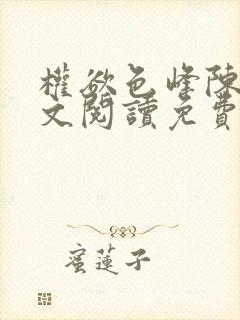 權欲色峰陳
文閱讀免費
蜜蓮子